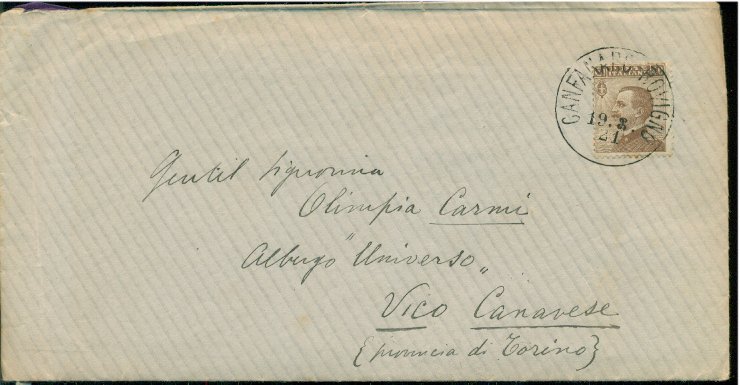 CANFANARO ROVIGNO
19. 8
21
Gentil Signorina
Olimpia Carmi
Albergo "Universo„
Vico Canavese
{provincia di Torino}